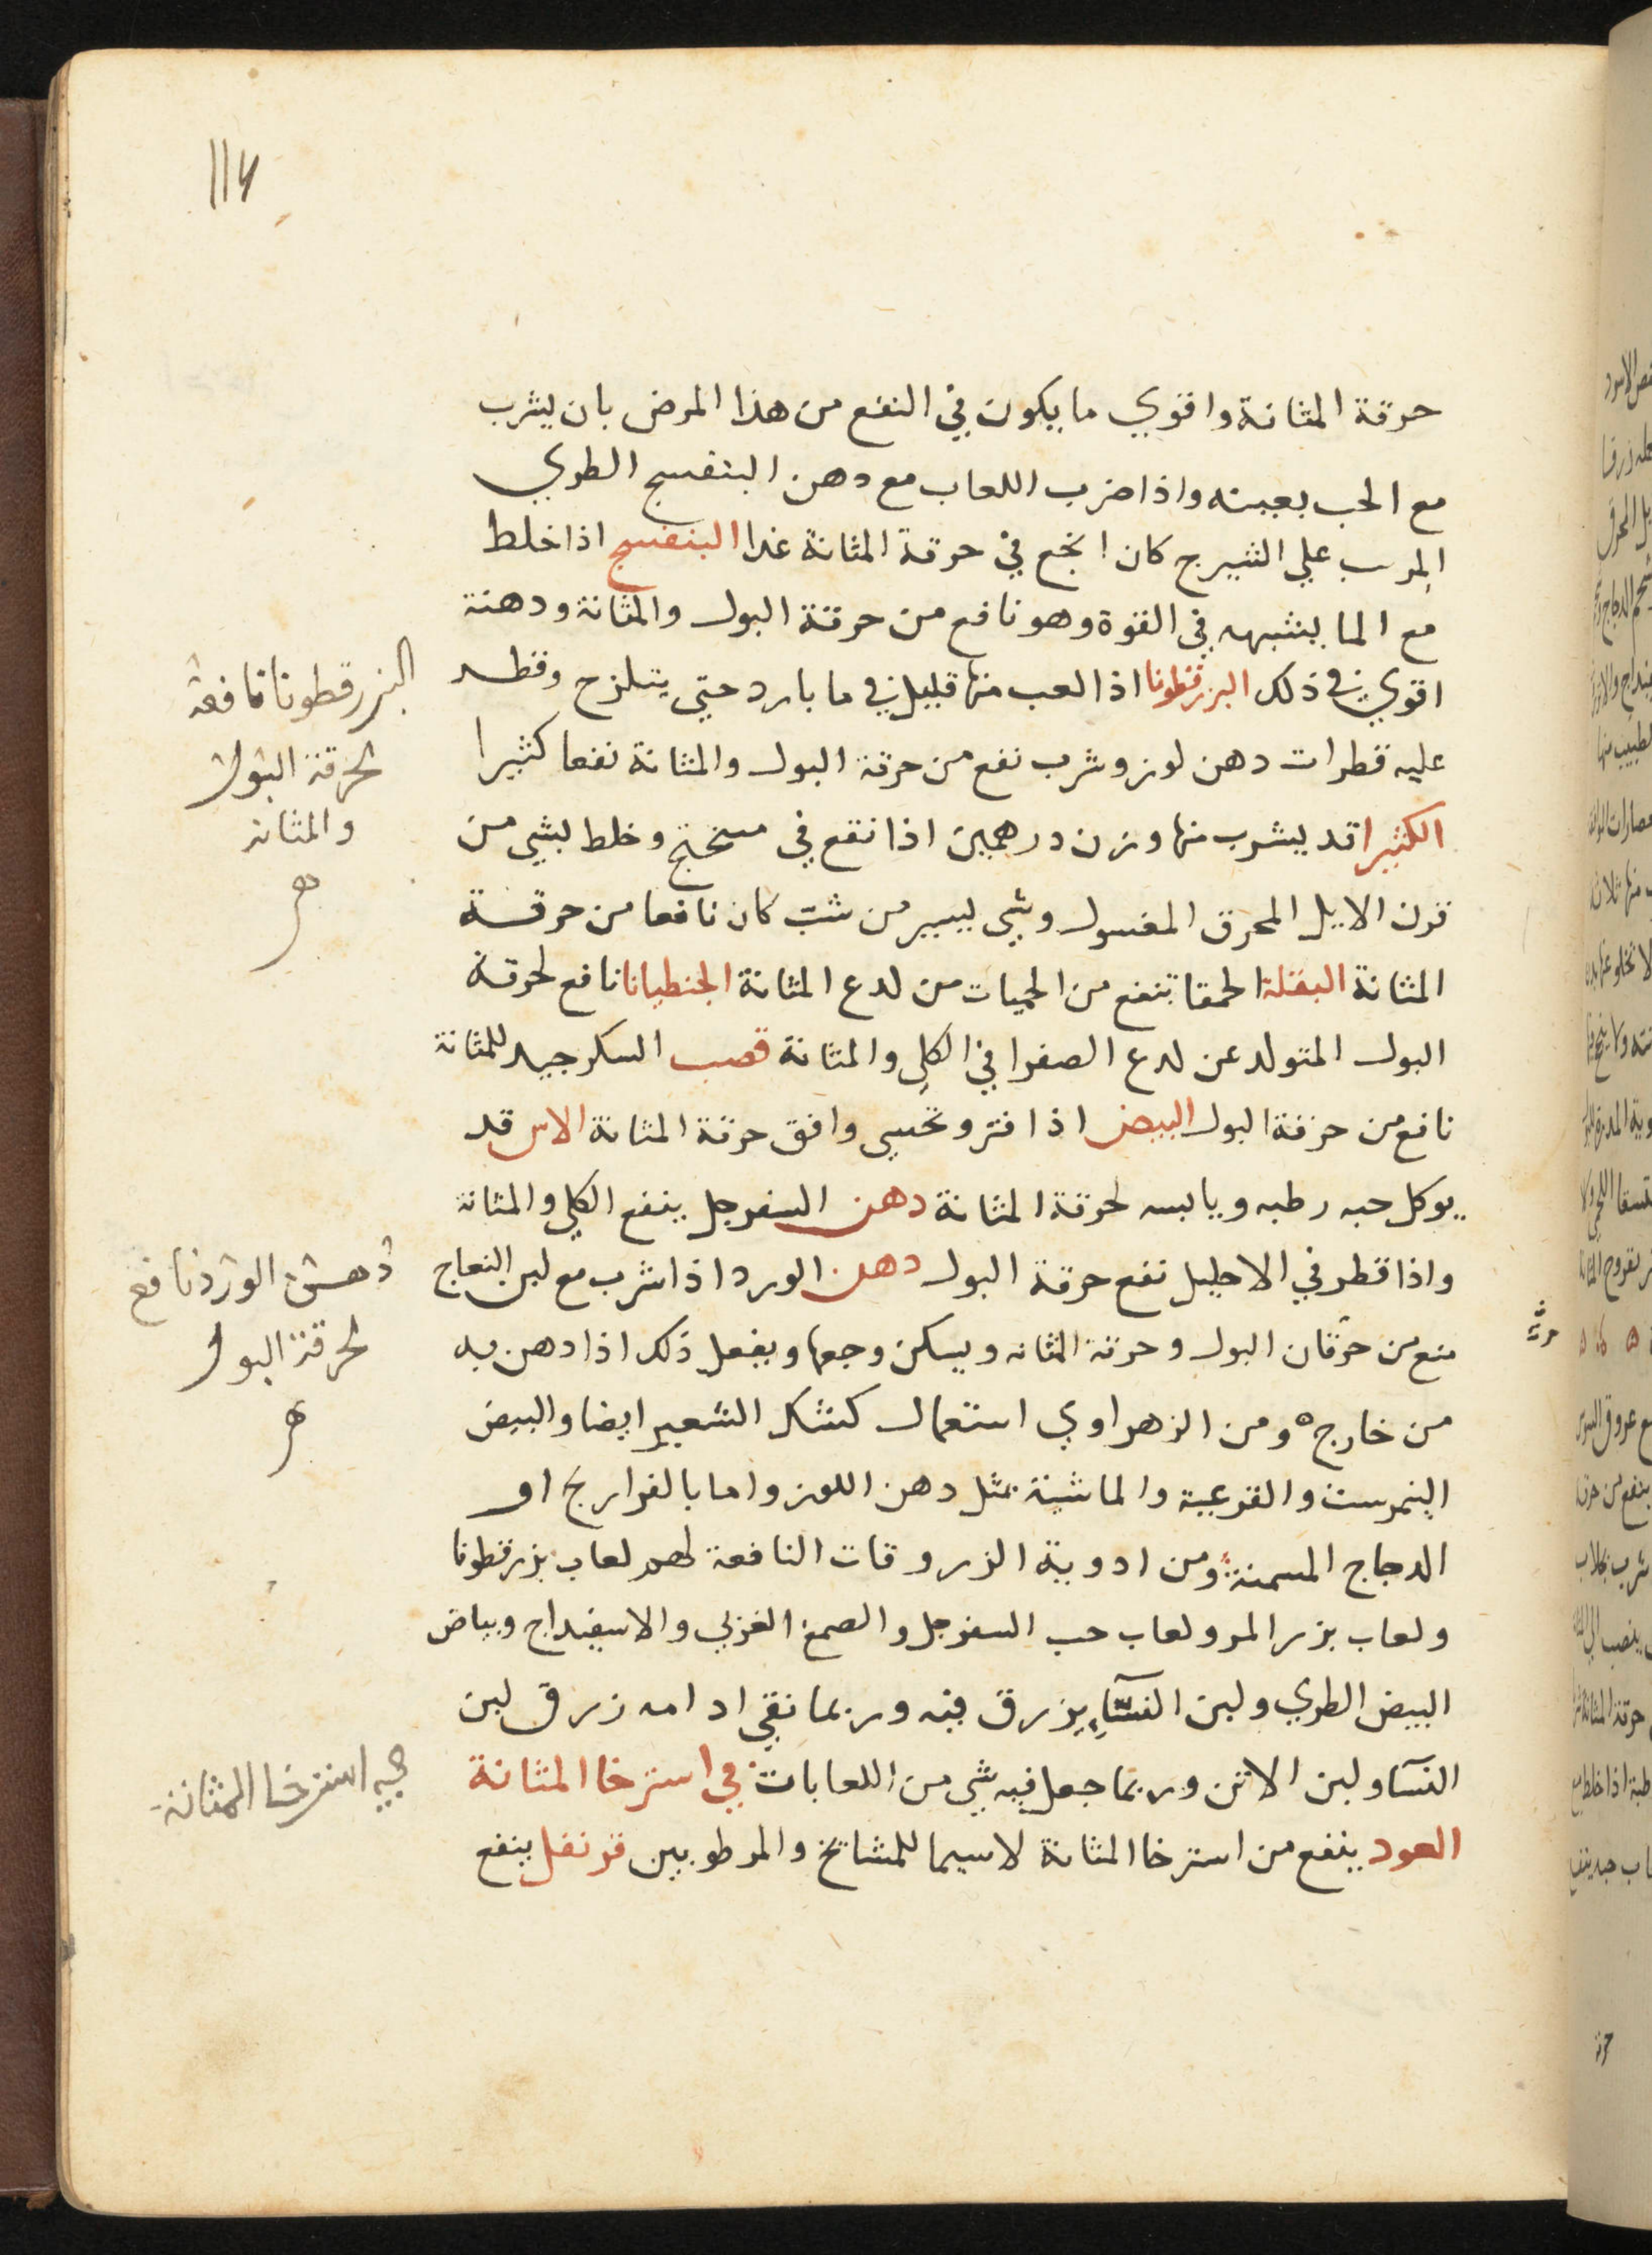 حرقة المثانة واقوي ما يكون في النفع من هذا المرض بان يشرب
مع الحب بعينه واذا ضرب اللعاب مع دهن البنفسج الطري
المرب علي الشيرج كان انجع في حرقة المثانة غدا البنفسج اذا خلط
مع الما بشبهه في القوة وهو نافع من حرقة البول والمثانة ودهنة
اقوي في ذلك البزرقطونا اذا لعب منها قليل في ما بارد حتي يتلزج وقطر
عليه قطرات دهن لوز وشرب نفع من حرقة البول والمثانة نفعا كثيرا
الكثيرا قد يشرب منها وزن درهمين اذا نقع في ميبختج وخلط بشي من
قرن الايل المحرق المغسول وشي يسير من شب كان نافعا من حرقة
المثانة البقلة الحمقا تنفع من الحميات من لدع المثانة الجنطيانا نافع لحرقة
البول المتولد عن لدع الصفرا في الكلي والمثانة قصب السكر جيد للمثانة
نافع من حرقة البول البيض اذا فتر وتحسي وافق حرقة المثانة الاس قد
يوكل حبه رطبه ويابسه لحرقة المثانة دهن السفرجل ينفع الكلي والمثانة
واذا قطر في الاحليل نفع حرقة البول دهن الورد اذا شرب مع لبن النعاج
منع من حرقان البول وحرقة المثانه ويسكن وجعها ويفعل ذلك اذا دهن به
من خارج ه ومن الزهراوي استعمال كشك الشعير ايضا والبيض
النمرست والقرعية والماشية بمثل دهن اللوز واما بالفراريج او
الدجاج المسمنة ومن ادوية الزروقات النافعة لهم لعاب بزرقطونا
ولعاب بزر المر ولعاب حب السفرجل والصمغ العربي والاسفيداج وبياض
البيض الطري ولبن النسآء يزرق فيه وربما نقي ادامه زرق لبن
النسآ ولبن الاتن وربما جعل فيه شي من اللعابات في استرخا المثانة
العود ينفع من استرخا المثانة لاسيما للمشائخ والمرطوبين قرنفل ينفع
البزرقطونا نافعة
لحرقة البول
والمثانه
دهن الورد نافع
لحرقة البول
في استرخا المثانة